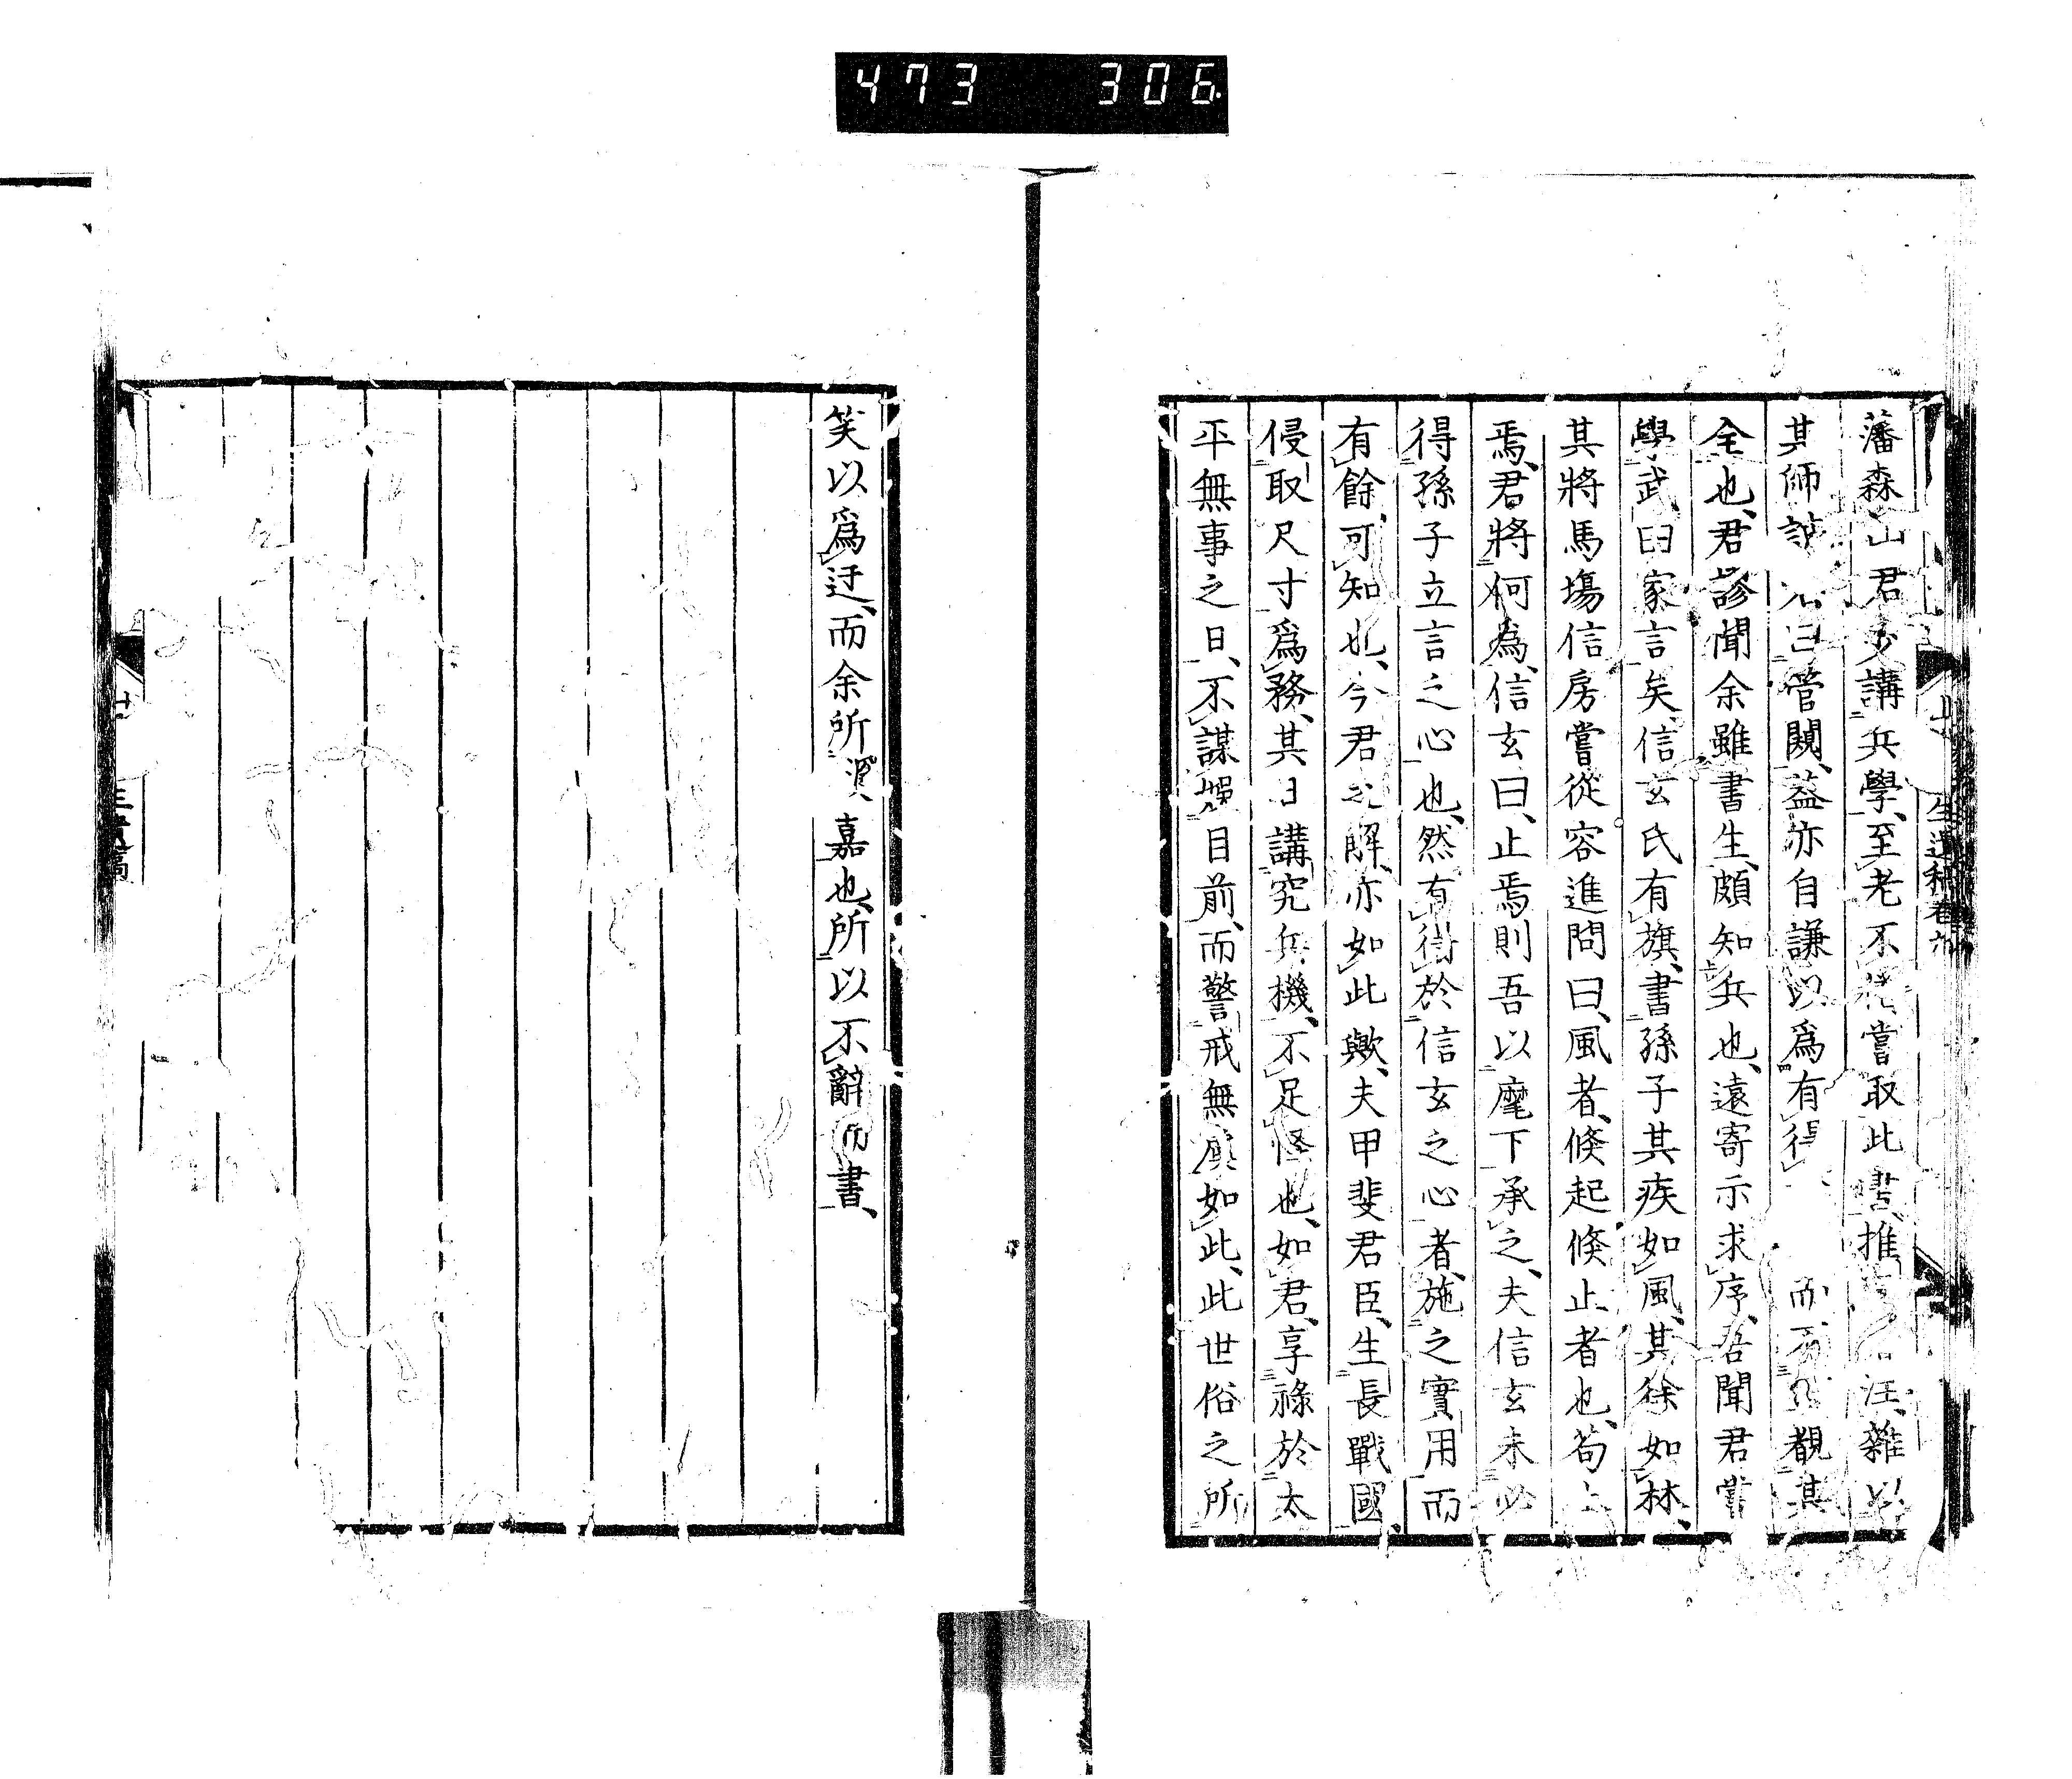 473 306
藩森山君少講兵學、至老不嘗取此書、推注、雜以
其師説曰管闚、蓋亦自謙以爲有得而不觀其
全也、君謬聞余雖書生、頗知兵也、遠寄示求序、吾聞君嘗
學武田家言矣、信玄氏有旗、書孫子其疾如風、其徐如林、
其將馬塲信房嘗從容進問曰、風者、倏起倏止者也、苟止
焉、君將何為、信玄曰、止焉則吾以麾下承之、夫信玄未必
得孫子立言之心也、然有得於信玄之心者、施之實用而
有餘、可知也、今君之解、亦如此歟、夫甲斐君臣、生長戰國、
侵取尺寸爲務、其日講究兵機、不足怪也、如君、享祿於太
平無事之日、不謀娛目前、而警戒無虞如此、此世俗之所
笑以爲迂、而余所深嘉也、所以不辭而書、